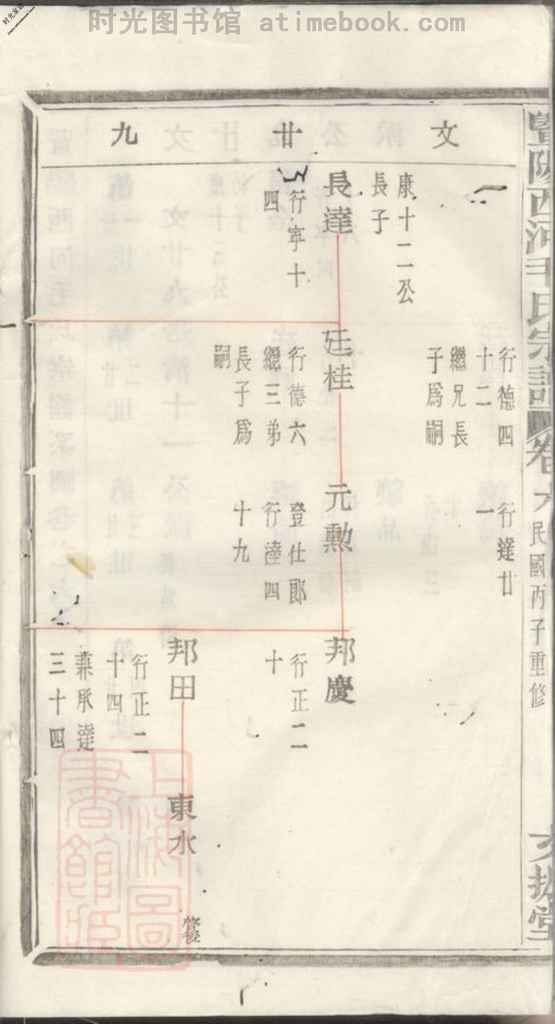 时光图书馆 atimebook.com
暨陽西河毛氏宗譜
卷六
民國丙子重修
大振堂
文
廿
九
行德四
十二
繼兄長
子為嗣
行達廿
一
康十二公
長子
長達
行寧十
四
廷桂
行德六
繼三弟
長子為
嗣
元勲
登仕郎
行達四
十九
邦慶
行正二
十
邦田
行正二
十四
兼承達
三十四
東水
上海圖
書館藏